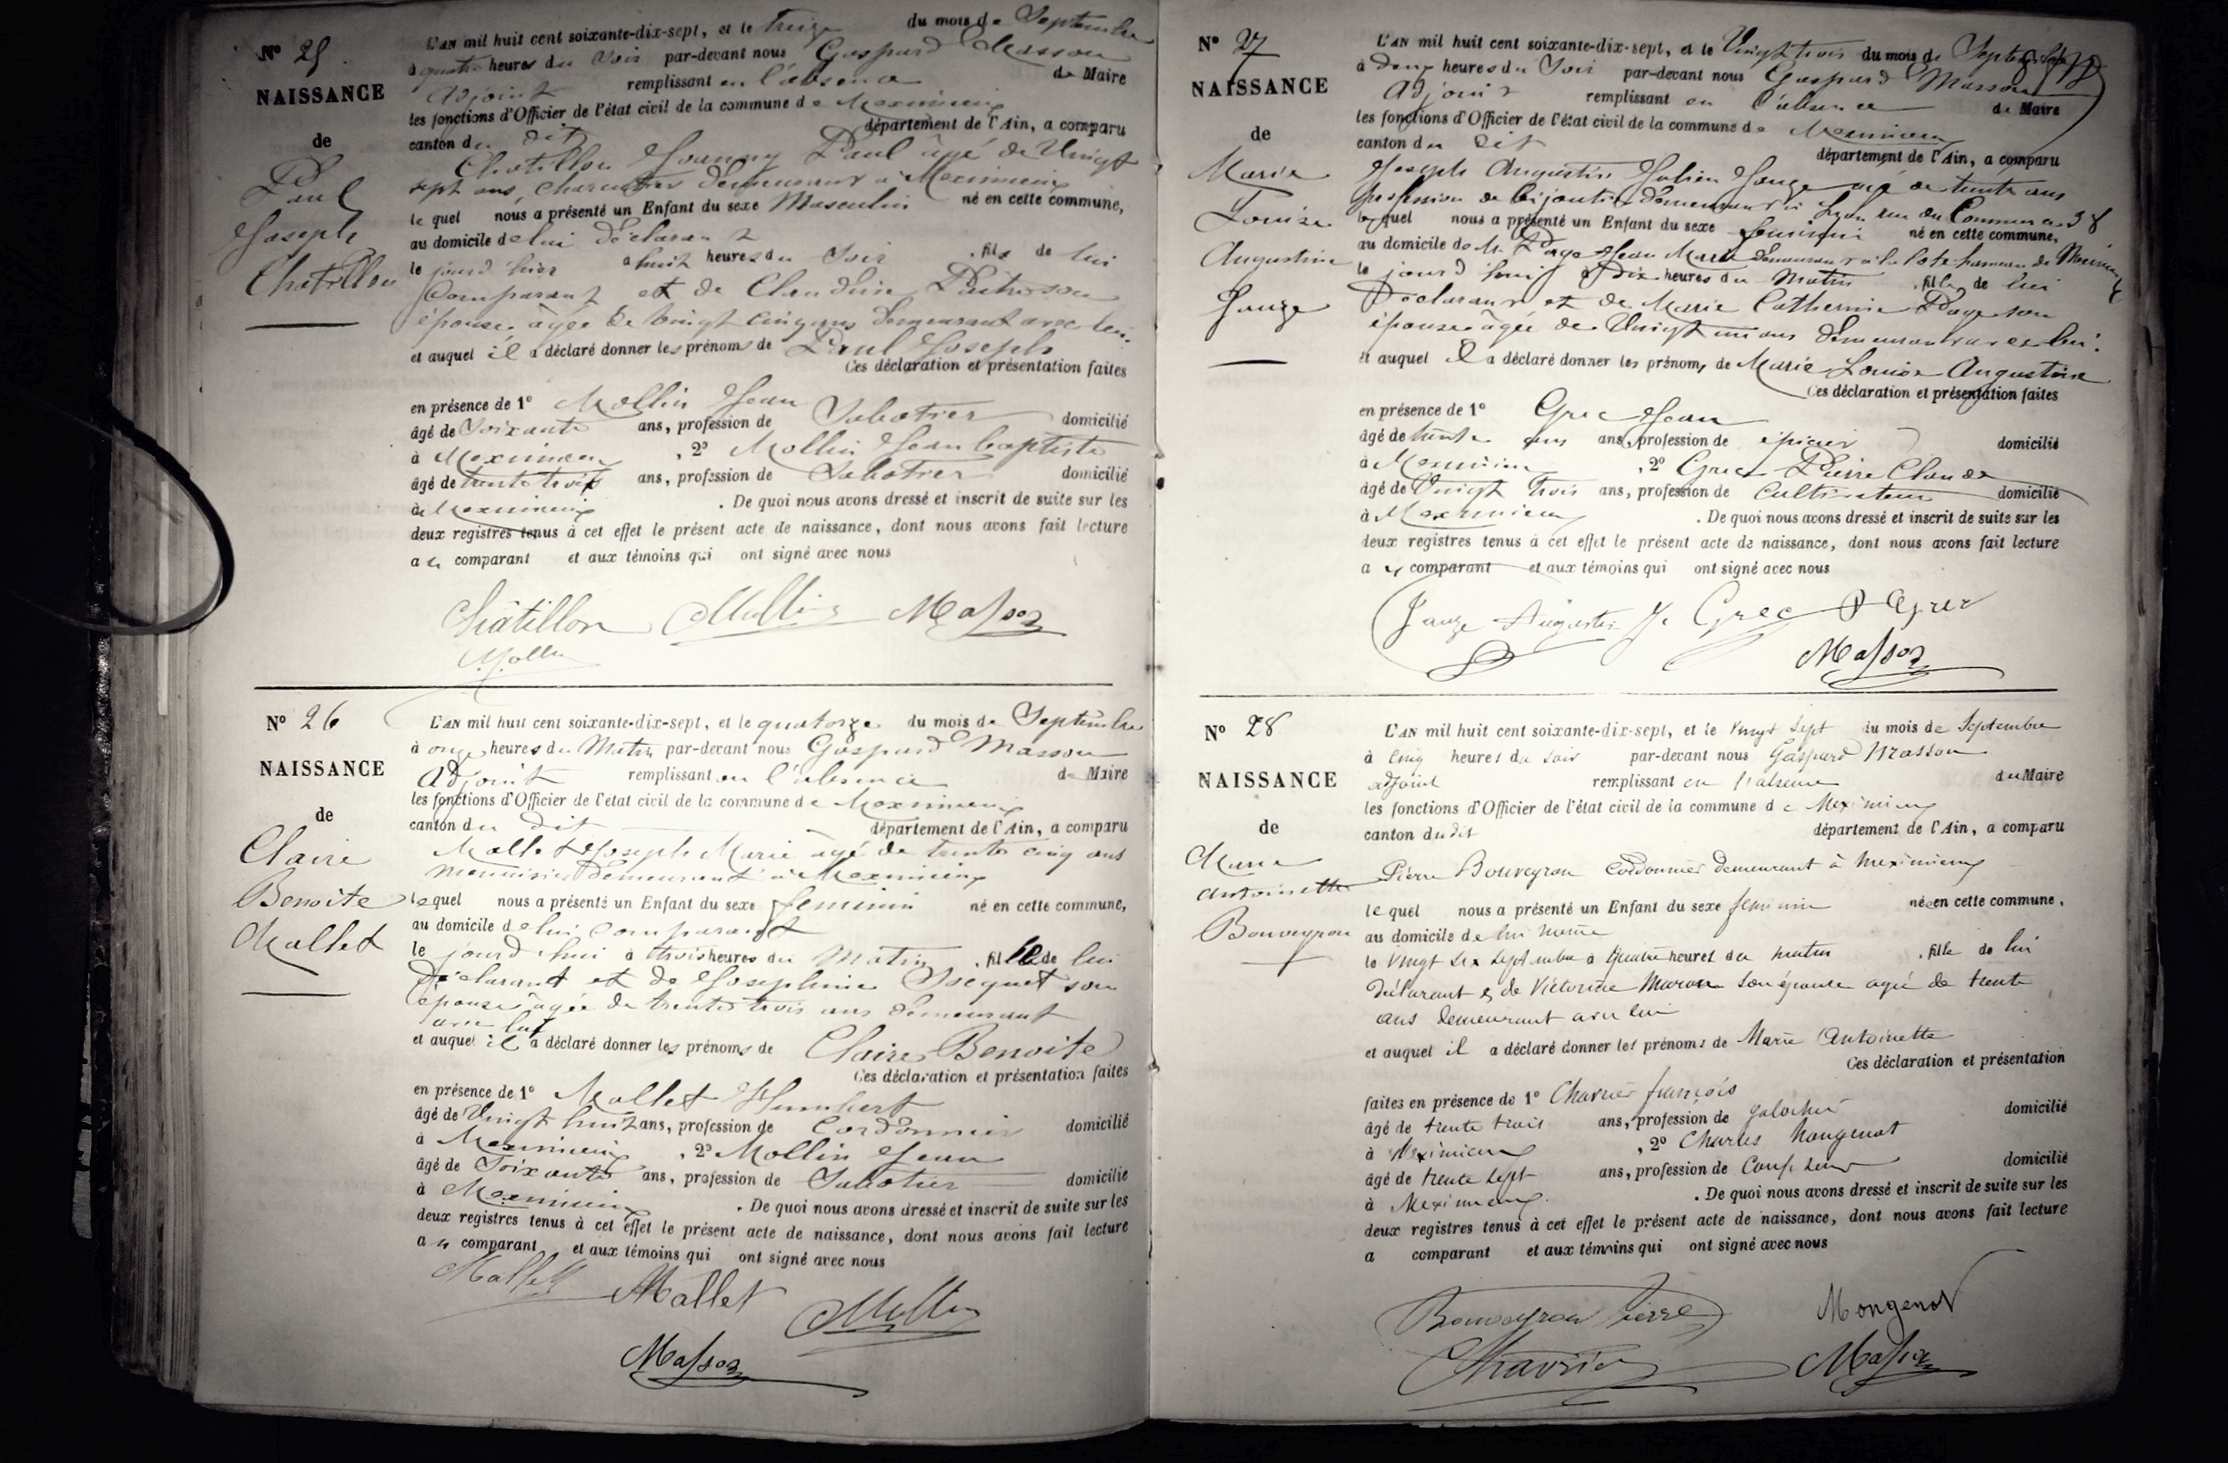 N° 25
NAISSANCE
de
Paul
Joseph
Chatillon
L'AN mil huit cent soixante-dix-sept, et le treize du mois de Septembre
à quatre heures du Soir par-devant nous Gaspard Masson
Adjoint remplissant en l'absence du Maire
les fonctions d'Officier de l'état civil de la commune de Meximieux
canton du dit département de l'Ain, a comparu
Chatillon Joanny Paul âgé de Vingt
sept ans, charcutier demeurant à Meximieux
le quel nous a présenté un Enfant du sexe Masculin né en cette commune,
au domicile de lui déclarant
le jourd'hier à huit heures du Soir , fils de lui
Comparant et de Claudine son
épouse âgée de Vingt cinq ans demeurant avec lui.
et auquel il a déclaré donner les prénoms de Paul Joseph
Ces déclaration et présentation faites
en présence de 1° Mollin Jean
âgé de Soixante ans, profession de Sabotier domicilié
à Meximieux , 2° Mollin Jean baptiste
âgé de trente trois ans, profession de Sabotier domicilié
à Meximieux . De quoi nous avons dressé et inscrit de suite sur les
deux registres tenus à cet effet le présent acte de naissance, dont nous avons fait lecture
au comparant et aux témoins qui ont signé avec nous
Châtillon Mollin Masson
Mollin
N° 26
NAISSANCE
de
Claire
Benoite
Mallet
L'AN mil huit cent soixante-dix-sept, et le quatorze du mois de Septembre
à onze heures du Matin par-devant nous Gaspard Masson
Adjoint remplissant en l'absence du Maire
les fonctions d'Officier de l'état civil de la commune de Meximieux
canton du dit département de l'Ain, a comparu
Mallet Joseph Marie âgé de trente cinq ans
Menuisier demeurant à Meximieux
lequel nous a présenté un Enfant du sexe feminin né en cette commune,
au domicile de lui comparant
le jourd'hui à trois heures du Matin , fille de lui
Déclarant et de Josephine son
épouse âgée de trente trois ans demeurant
avec lui
et auquel il a déclaré donner les prénoms de Claire Benoite
Ces déclaration et présentation faites
en présence de 1° Mallet Humbert
âgé de Vingt huit ans, profession de Cordonnier domicilié
à Meximieux , 2° Mollin Jean
âgé de Soixante ans, profession de Sabotier domicilié
à Meximieux . De quoi nous avons dressé et inscrit de suite sur les
deux registres tenus à cet effet le présent acte de naissance, dont nous avons fait lecture
au comparant et aux témoins qui ont signé avec nous
Mallet Mallet Mollin
Masson
N° 27
NAISSANCE
de
Marie
Louise
Augustine
Jauze
L'AN mil huit cent soixante-dix-sept, et le Vingt trois du mois de Septembre
à deux heures du Soir par-devant nous Gaspard Masson
Adjoint remplissant en l'absence du Maire
les fonctions d'Officier de l'état civil de la commune de Meximieux
canton du dit département de l'Ain, a comparu
Joseph Augustin Julien Jauze âgé de trente ans
profession de bijoutier demeurant à Lyon rue du Commerce 38
lequel nous a présenté un Enfant du sexe feminin né en cette commune,
au domicile de Mr Page Jean Marie demeurant à la Cote hameau de Meximieux
le jourd'hui à Dix heures du Matin , fille de lui
Déclarant et de Marie Catherine Page son
épouse âgée de Vingt un ans demeurant avec lui.
et auquel il a déclaré donner les prénoms de Marie Louise Augustine
Ces déclaration et présentation faites
en présence de 1° Grec Jean
âgé de trente ans ans, profession de épicier domicilié
à Meximieux , 2° Grec Pierre Claude
âgé de Vingt trois ans, profession de Cultivateur domicilié
à Meximieux . De quoi nous avons dressé et inscrit de suite sur les
deux registres tenus à cet effet le présent acte de naissance, dont nous avons fait lecture
au comparant et aux témoins qui ont signé avec nous
Jauze Augustin Grec P Grec
Masson
N° 28
NAISSANCE
de
Marie
Antoinette
Bouveyron
L'AN mil huit cent soixante-dix-sept, et le Vingt Sept du mois de Septembre
à cinq heures du soir par-devant nous Gaspard Masson
adjoint remplissant en l'absence du Maire
les fonctions d'Officier de l'état civil de la commune de Meximieux
canton du dit département de l'Ain, a comparu
Pierre Bouveyron Cordonnier demeurant à Meximieux
le quel nous a présenté un Enfant du sexe feminin née en cette commune,
au domicile de lui même
le Vingt Six Septembre à Quatre heures du matin , fille de lui
déclarant & de Victorine Maron son épouse agée de trente
ans demeurant avec lui
et auquel il a déclaré donner les prénoms de Marie Antoinette
Ces déclaration et présentation
faites en présence de 1° Charvier françois
âgé de trente trois ans, profession de galochier domicilié
à Meximieux , 2° Charles Mongenot
âgé de trente sept ans, profession de domicilié
à Meximieux . De quoi nous avons dressé et inscrit de suite sur les
deux registres tenus à cet effet le présent acte de naissance, dont nous avons fait lecture
a comparant et aux témoins qui ont signé avec nous
Bouveyron Pierre Mongenot
Masson